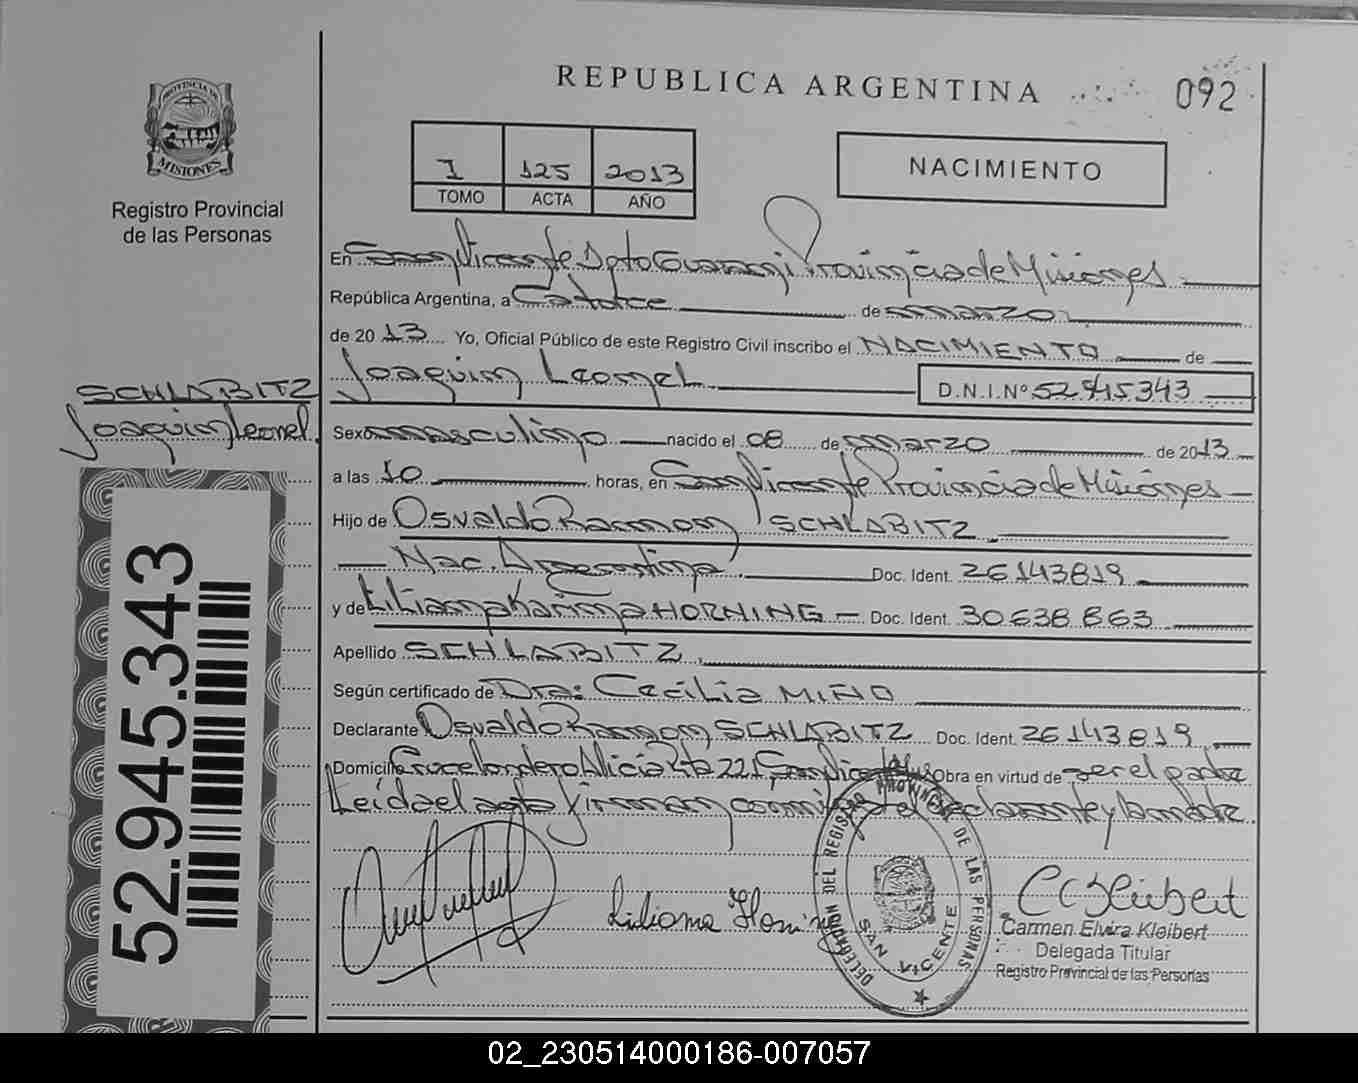 REPUBLICA ARGENTINA
092
PROVINCIA DE
MISIONES
Registro Provincial
de las Personas
I 125 2013
TOMO ACTA AÑO
NACIMIENTO
En San Vicente Dpto Guarani Provincia de Misiones
República Argentina, a Catorce de marzo
de 2013 Yo, Oficial Público de este Registro Civil inscribo el NACIMIENTO de
Joaquim Leonel D.N.I.Nº 52.945.343
SCHLABITZ
Joaquim Leonel
Sexo masculino nacido el 08 de marzo de 2013
a las 10 horas, en San Vicente Provincia de Misiones
Hijo de Osvaldo Ramon SCHLABITZ
Nac. Argentina Doc. Ident. 26143819
y de Liliana Karina HORNING Doc. Ident. 30638863
Apellido SCHLABITZ
Según certificado de Dra: Cecilia MIÑO
Declarante Osvaldo Ramon SCHLABITZ Doc. Ident. 26143819
Domicilio Cruce Londero Alicia Rta 221 San Vicente Obra en virtud de ser el padre
Leida el acta firman conmigo el declarante y la madre
52.945.343
Liliana Horning
DELEGACION DEL REGISTRO PROVINCIAL DE LAS PERSONAS
SAN VICENTE
C C Kleibert
Carmen Elvira Kleibert
Delegada Titular
Registro Provincial de las Personas
02_230514000186-007057